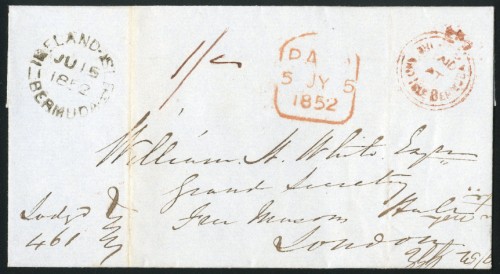 IRELAND ISLE
JU 16
1852
BERMUDA
1/-
PA
5 JY 5
1852
BERMUDA
William H. White Esqre
Grand Secretary
Free Masons Hall
London
Lodge
461